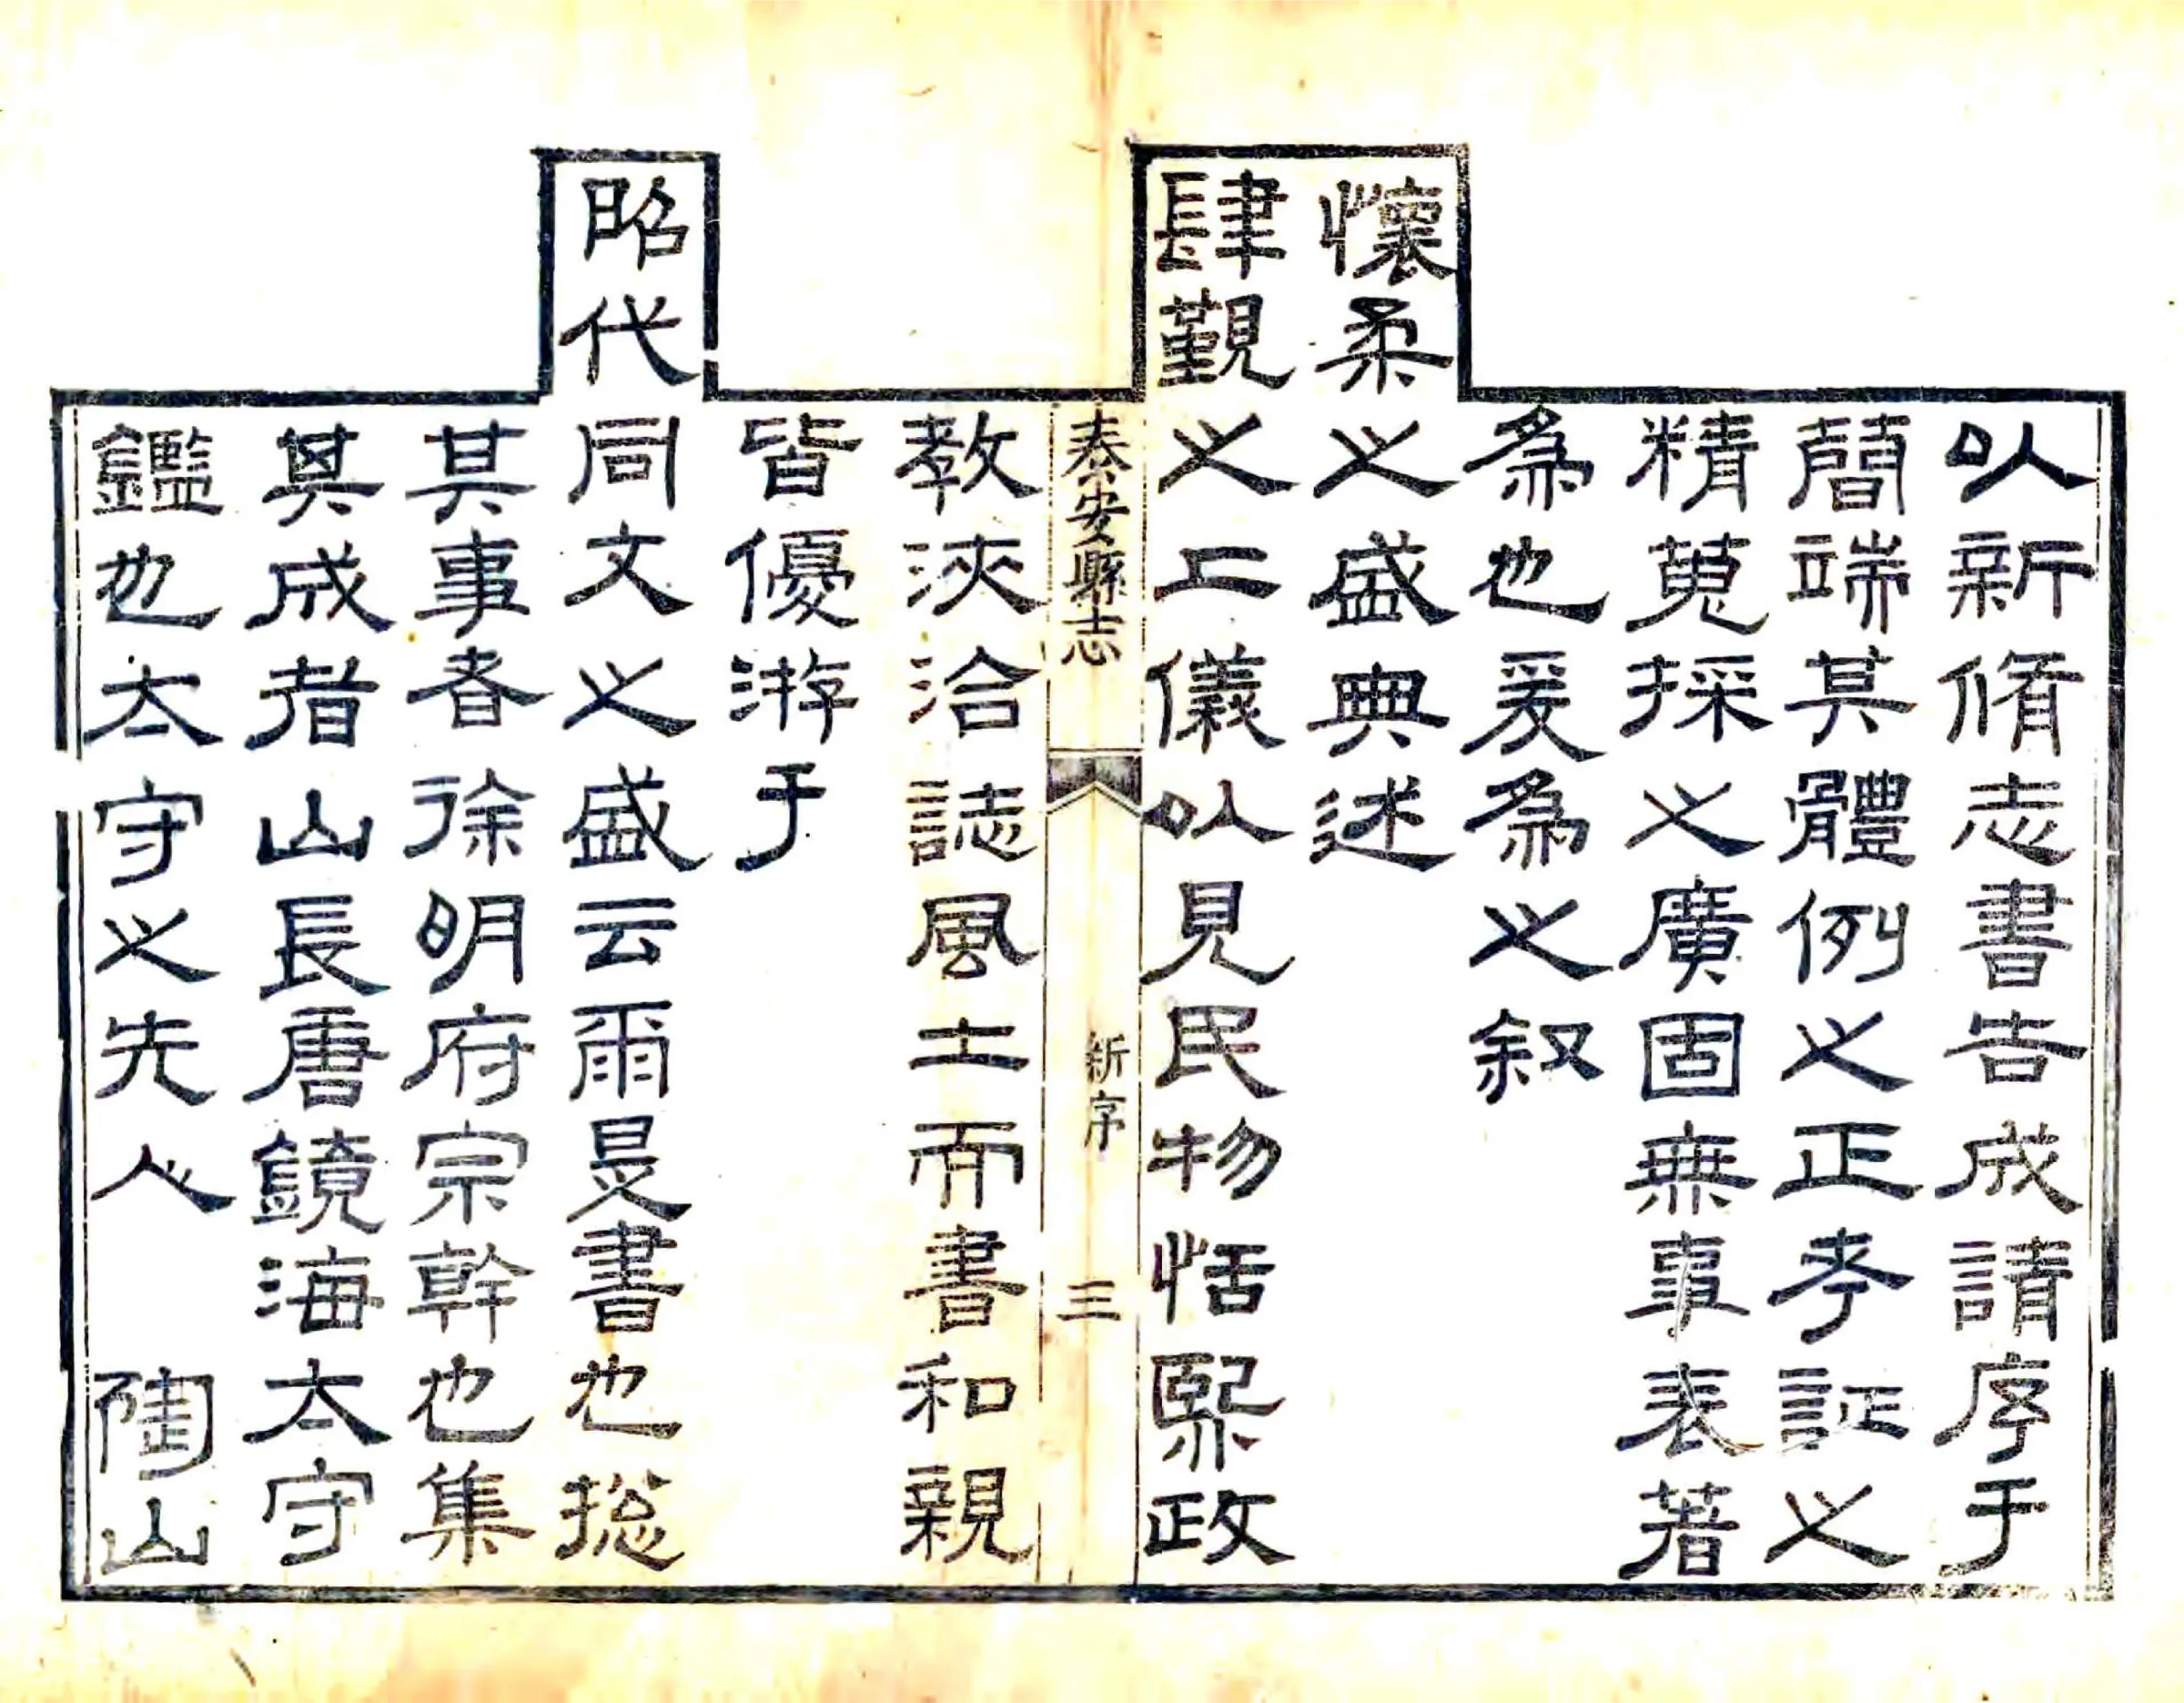 以新脩志書告成請序于
簡端其體例之正考証之
精蒐採之廣固無事表著
為也爰為之叙
懷柔之盛典述
肆覲之上儀以見民物恬熙政
泰安縣志
新序
三
教浹洽誌風土而書和親
皆優游于
昭代同文之盛云爾是書也總
其事者徐明府宗幹也集
其成者山長唐鏡海太守
鑑也太守之先人 陶山